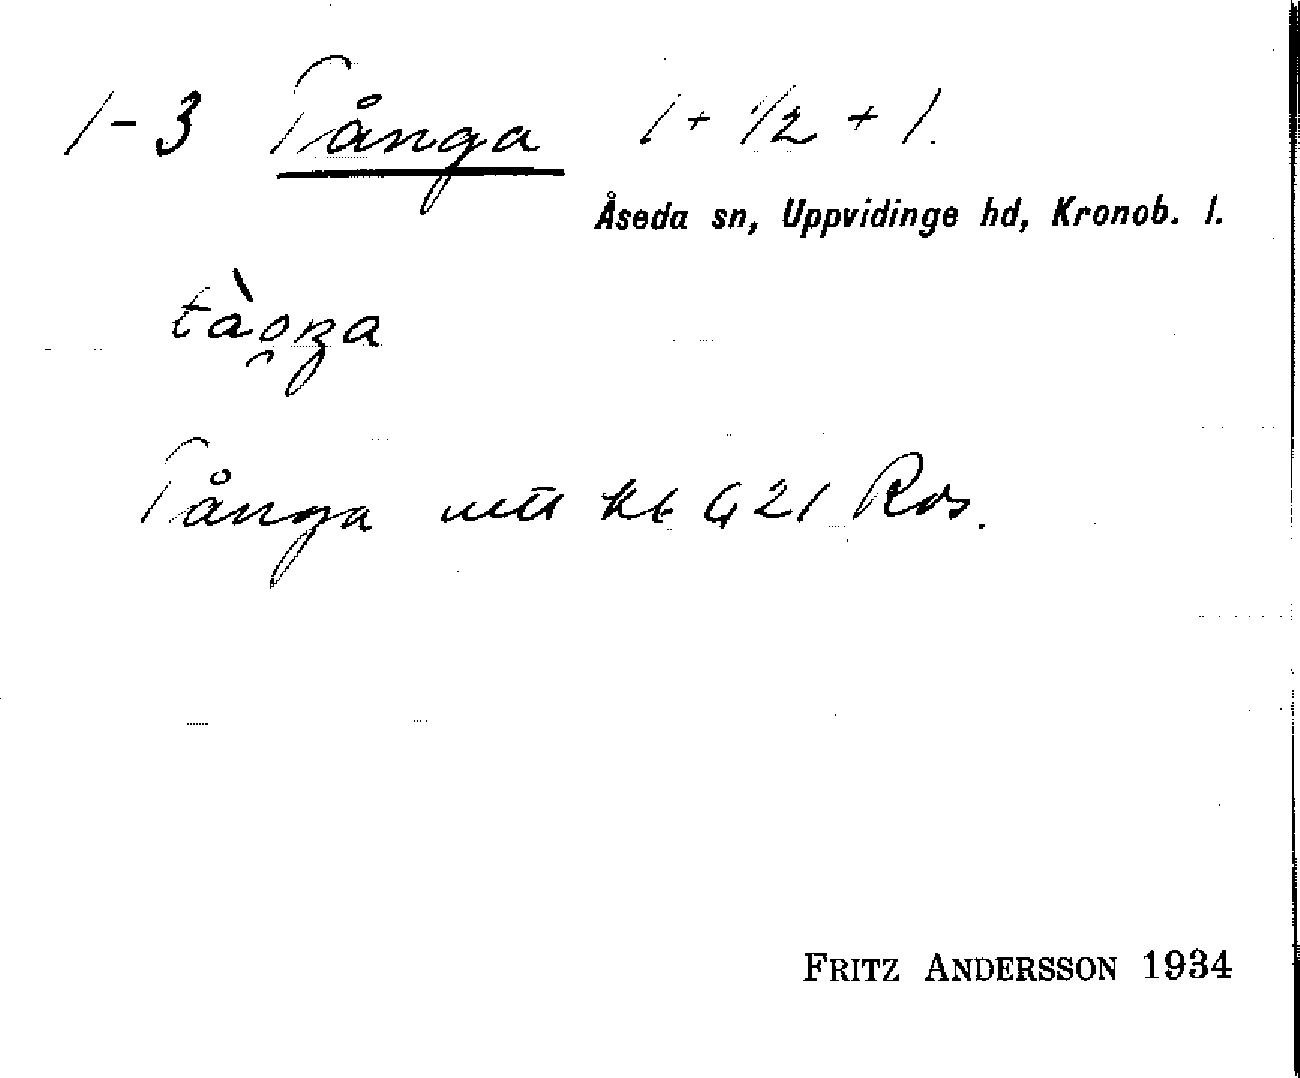 1-3 Tånga 1 + 1/2 + 1.
Åseda sn, Uppvidinge hd, Kronob. l.
tào̯ŋa
Tånga utt kb G 21 Ros.
FRITZ ANDERSSON 1934